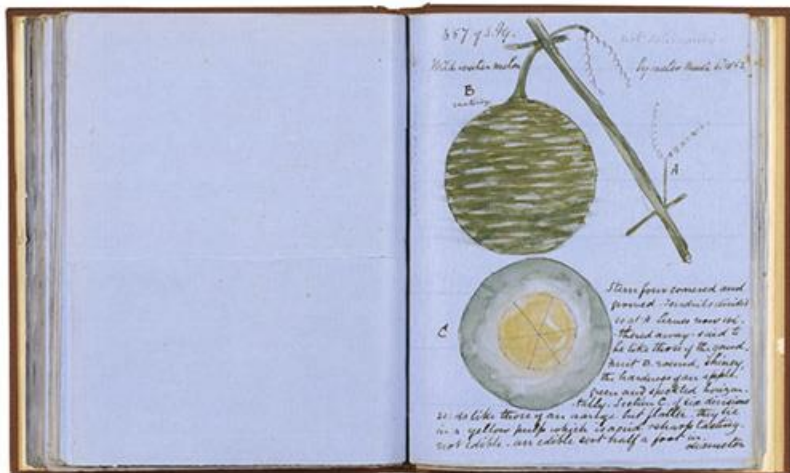 857 of S.Pg.
not
Wild water melon
by water March 6 1862
B
nat size
A
C
Stem four cornered and
grooved - Tendrils divided
as at A leaves now wi-
thered away - said to
be like those of the gourd,
fruit B. round, shiney,
the hardness of an apple
green and speckled horizon-
tally. Section C. of six divisions
seeds like those of an orange but flatter. they lie
in a yellow pulp which is acrid & sharp tasting.
not edible - an edible sort half a foot in
diameter